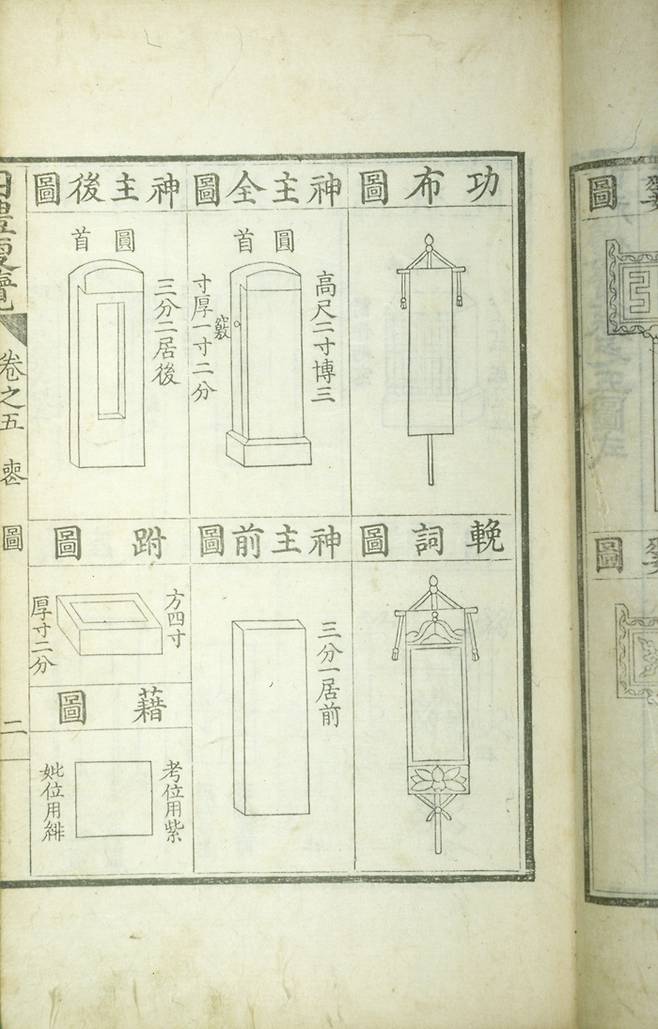 圖
圖
功布圖
輓詞圖
神主全圖
圓首
高尺二寸博三
寸厚一寸二分
竅
神主前圖
三分一居前
神主後圖
圓首
三分二居後
跗圖
方四寸
厚寸二分
藉圖
考位用紫
妣位用緋
四禮便覽
卷之五
喪
圖
二